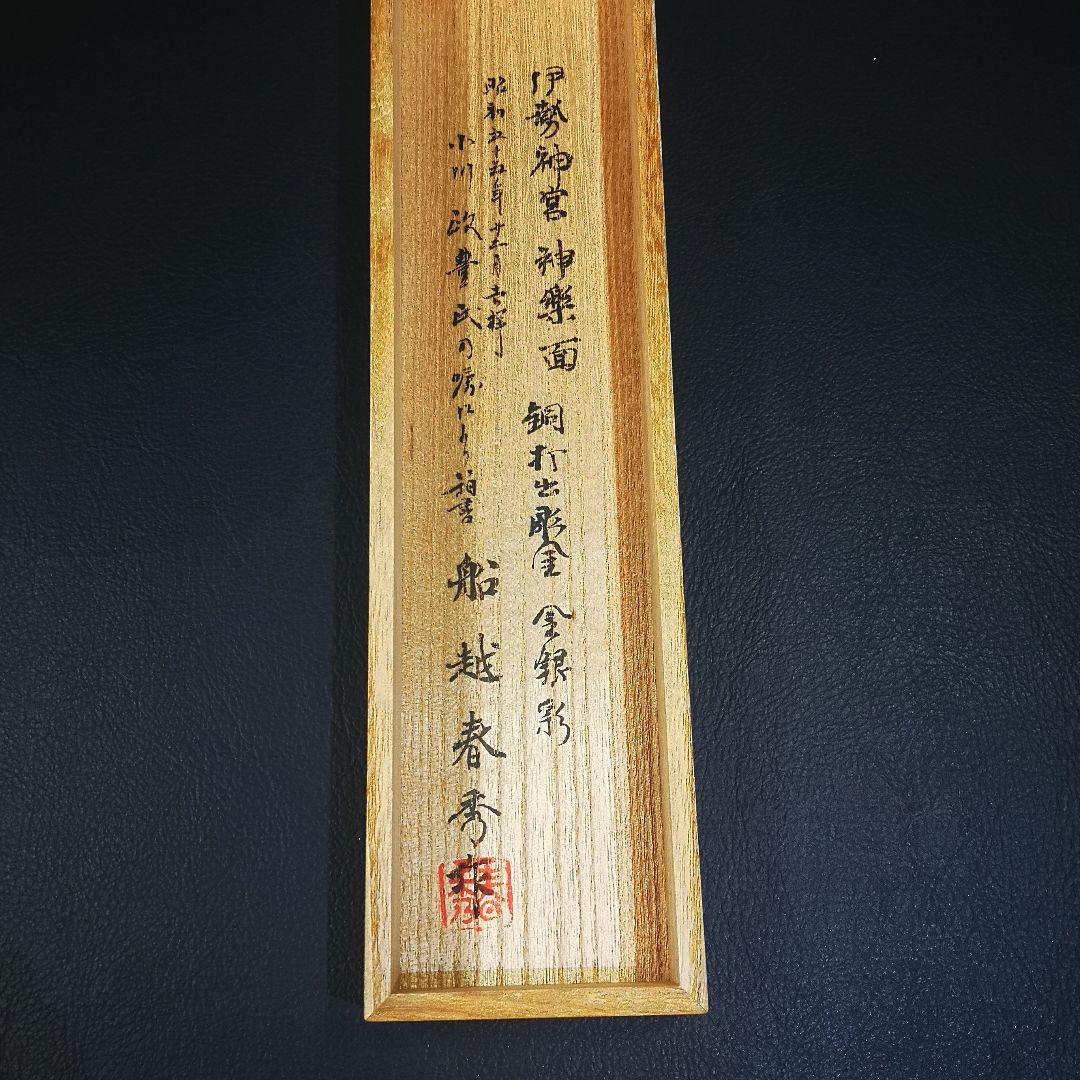 伊勢神宮 神樂面 銅打出彫金 金銀彩
昭和五十五年十二月吉祥
小川政豊氏の嘱により箱書 船越春秀